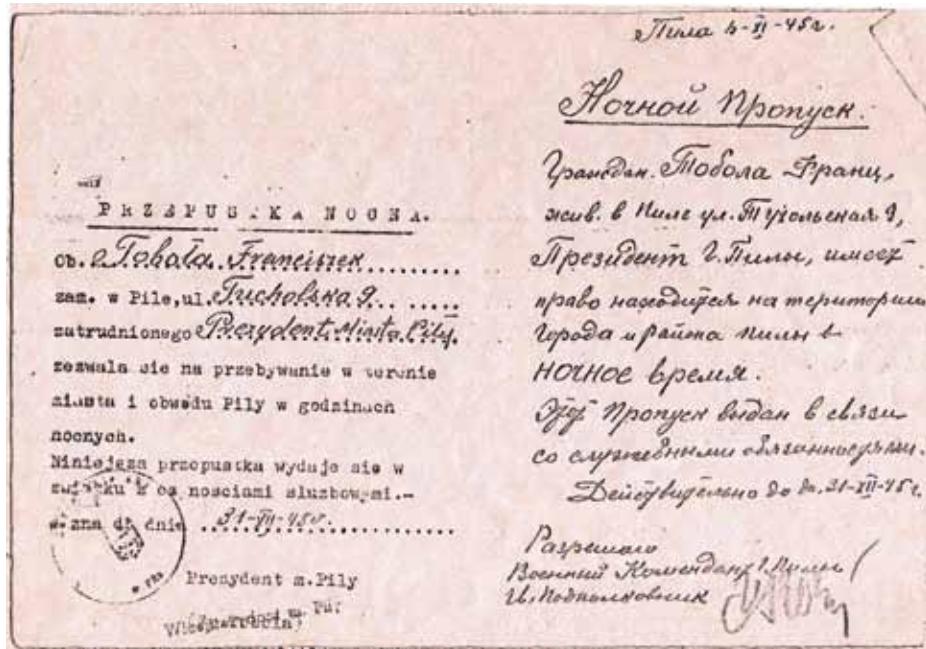 PRZEPUSTKA NOCNA.
ob. Toboła Franciszek
zam. w Pile, ul. Tucholska 9
zatrudnionego Prezydent Miasta Piły.
zezwala sie na przebywanie w terenie
miasta i obwodu Pily w godzinach
nocnych.
Niniejsza przepustka wydaje sie w
zwiazku z nosciami sluzbowymi.-
wazna do dnia 31-XII-45r.
Prezydent m.Pily
Пила XI-45г.
Ночной Пропуск.
Граждан. Тобола Франц,
жив. в Пиле ул. Тухольская 9,
Президент г. Пилы, имеет
право находится на територии
Города и района Пилы в
ночное время.
Этот Пропуск выдан в связи
со служебными обязанностями.
Действительно до 31-XII-45г.
Разрешаю
Военный Комендант г. Пилы
Подполковник